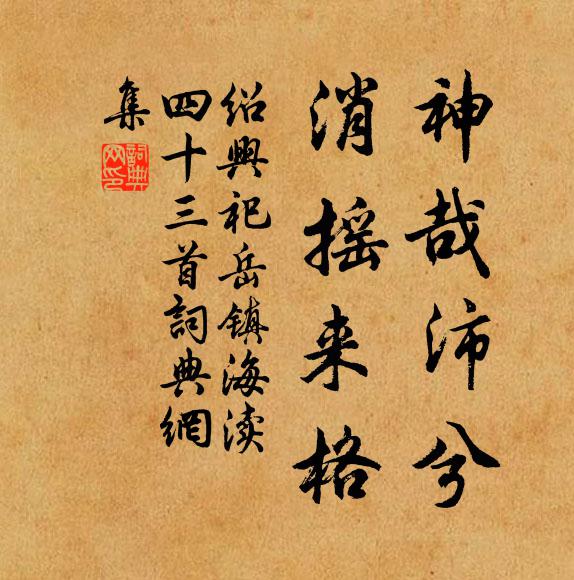 神哉沛兮
消摇来格
绍興祀岳镇海渎
四十三首詞典網
集
詞典網印